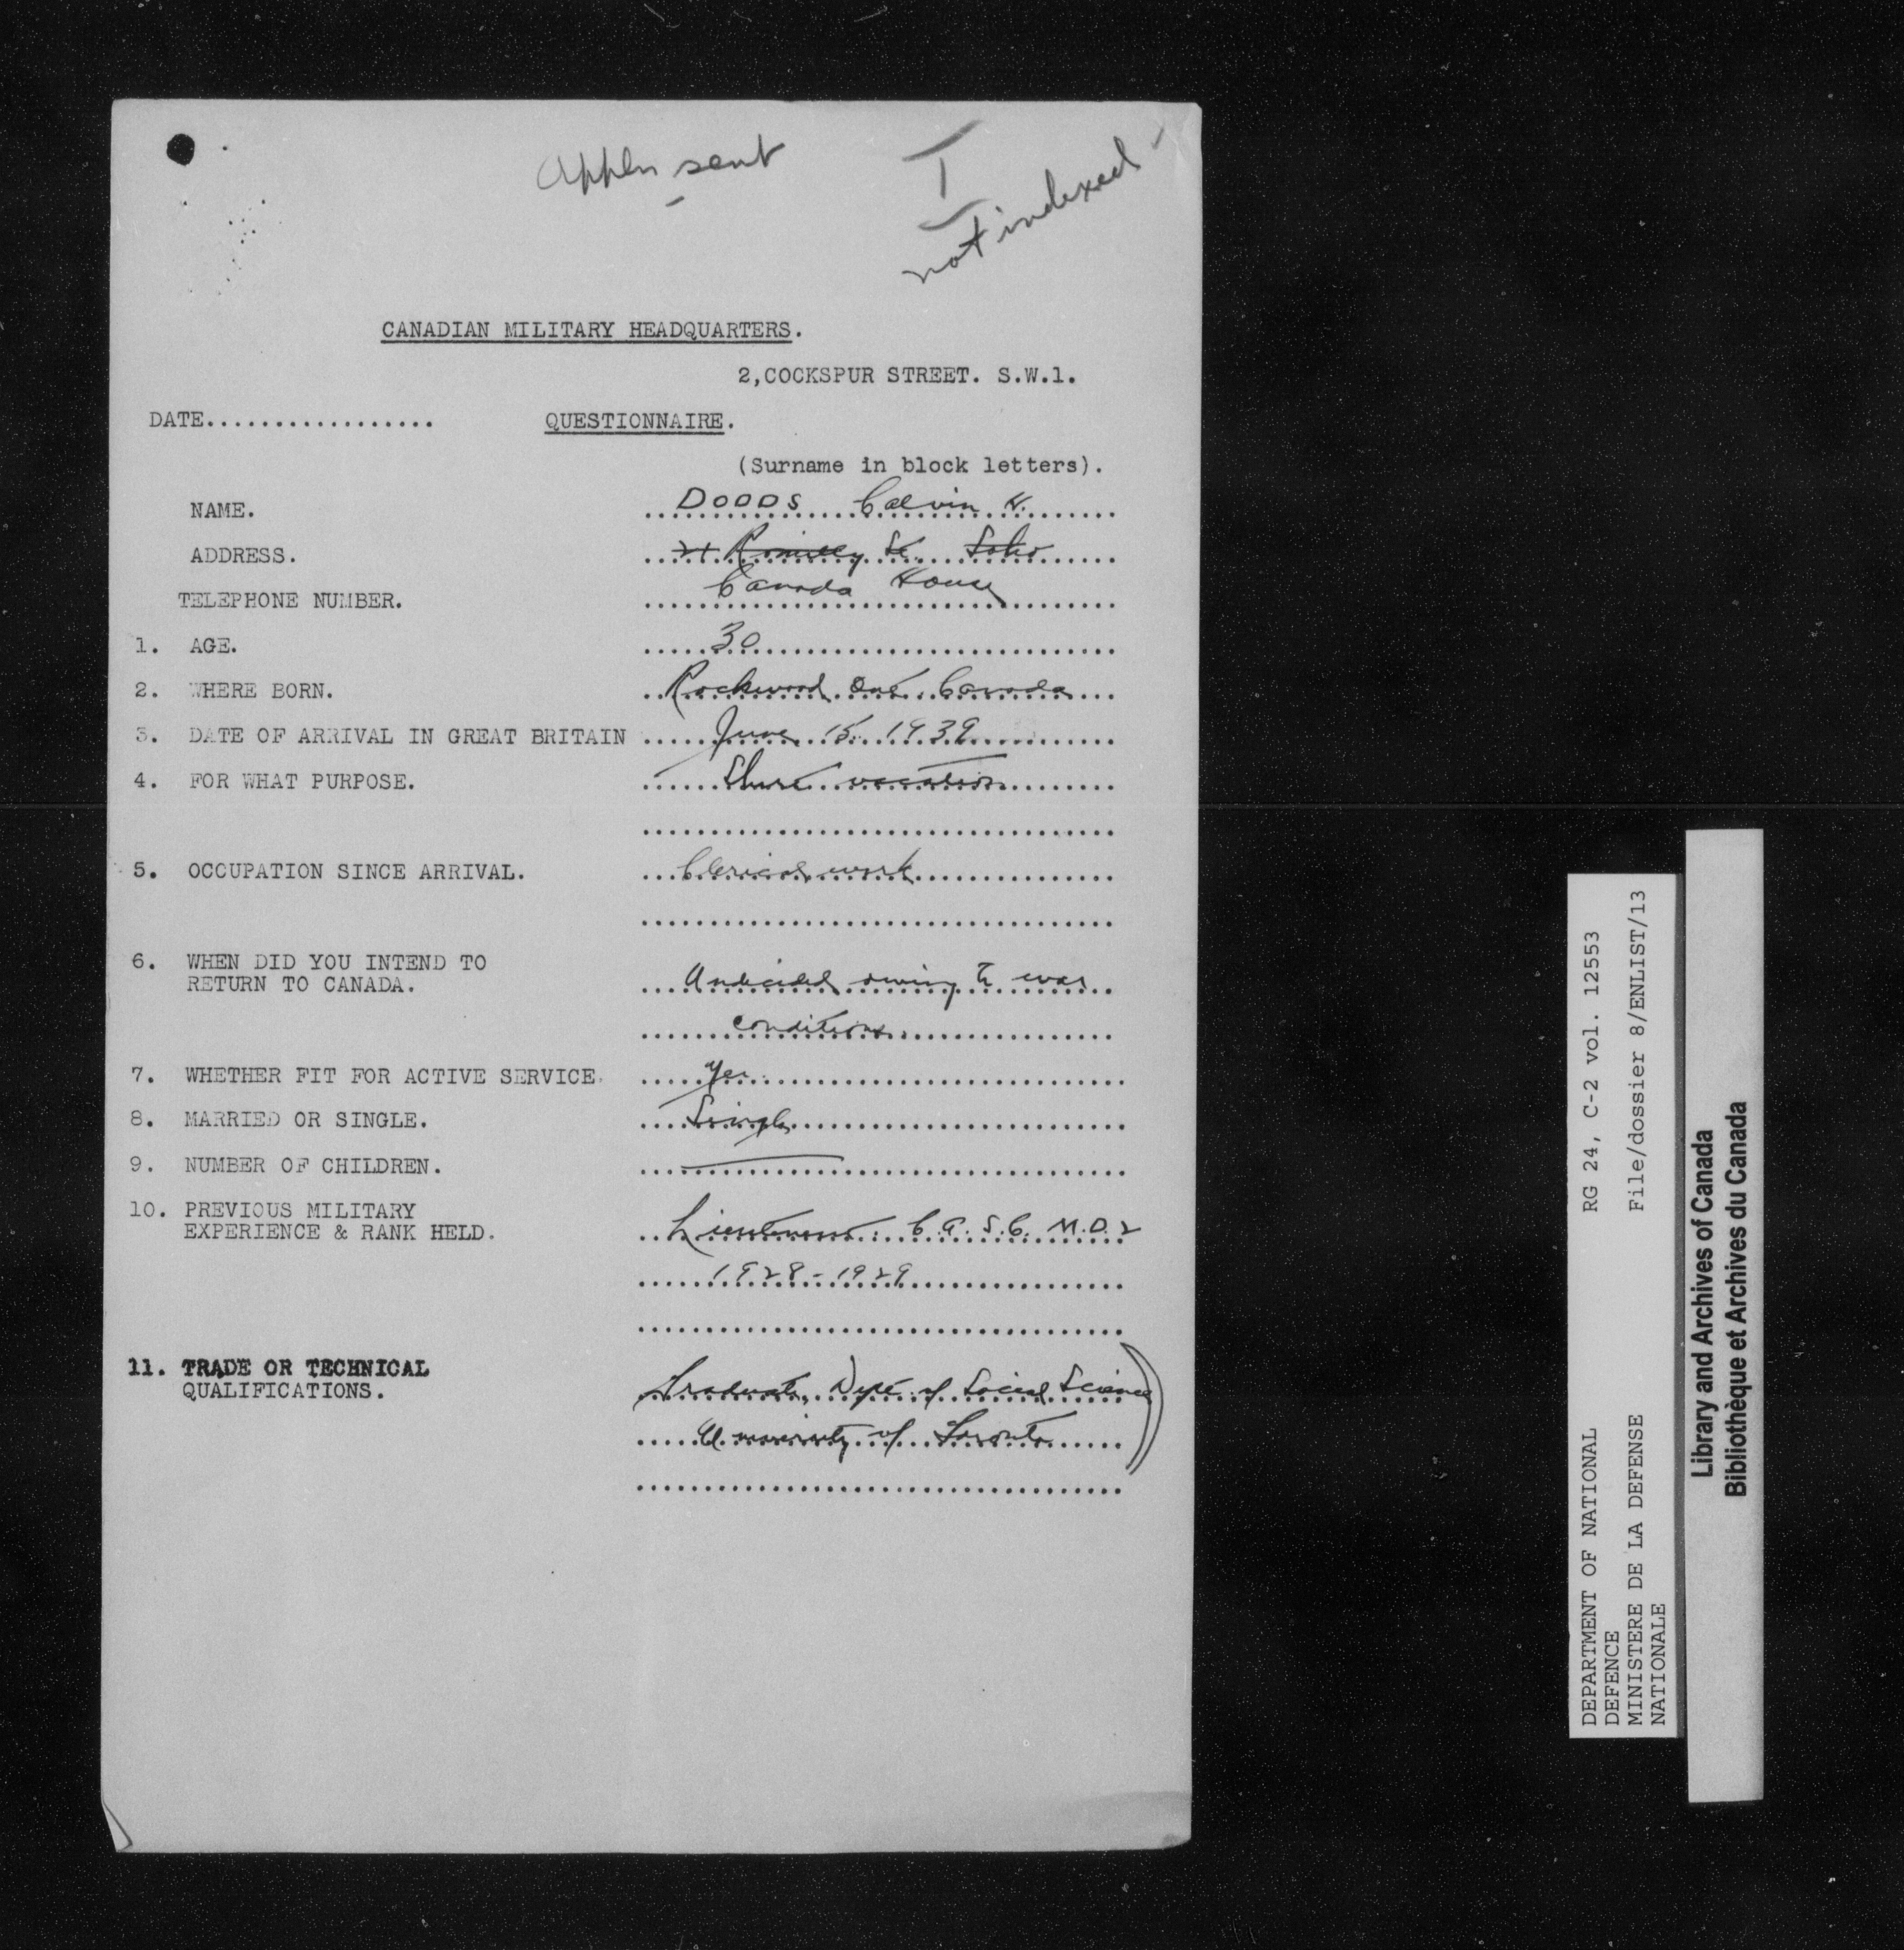 Appln sent
I
not indexed
CANADIAN MILITARY HEADQUARTERS.
2,COCKSPUR STREET. S.W.1.
DATE.................
QUESTIONNAIRE.
(Surname in block letters).
NAME. DODDS Calvin H.
ADDRESS. 21 Romilly St. Soho
Canada House
TELEPHONE NUMBER.
1. AGE. 30
2. WHERE BORN. Rockwood Ont. Canada
3. DATE OF ARRIVAL IN GREAT BRITAIN June 15 1939
4. FOR WHAT PURPOSE. Short vacation
5. OCCUPATION SINCE ARRIVAL. Clerical work
6. WHEN DID YOU INTEND TO
RETURN TO CANADA. Undecided owing to war
conditions
7. WHETHER FIT FOR ACTIVE SERVICE. Yes
8. MARRIED OR SINGLE. Single
9. NUMBER OF CHILDREN. —
10. PREVIOUS MILITARY
EXPERIENCE & RANK HELD. Lieutenant C.A.S.C. M.D.2
1928-1929
11. TRADE OR TECHNICAL
QUALIFICATIONS. Graduate, Dept of Social Science
University of Toronto
DEPARTMENT OF NATIONAL
DEFENCE
MINISTERE DE LA DEFENSE
NATIONALE
RG 24, C-2 vol. 12553
File/dossier 8/ENLIST/13
Library and Archives of Canada
Bibliothèque et Archives du Canada